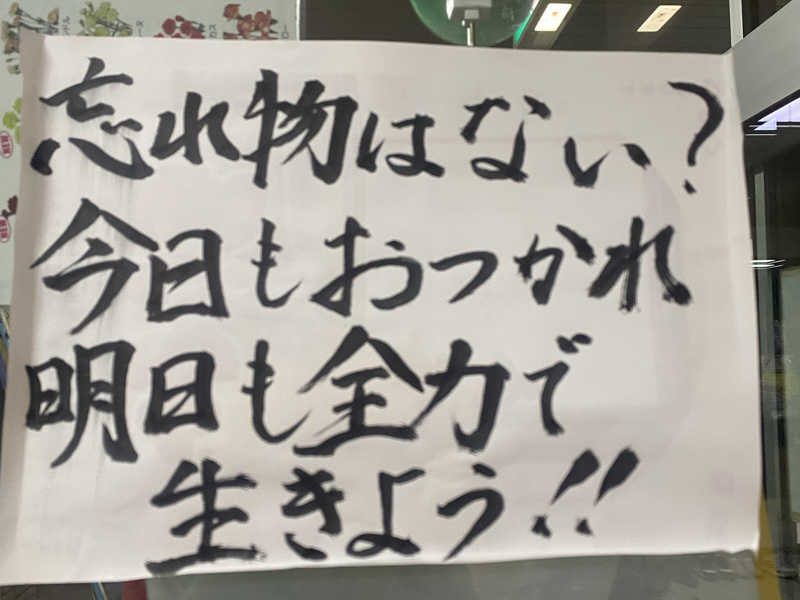 忘れ物はない?
今日もおつかれ
明日も全力で
生きよう!!